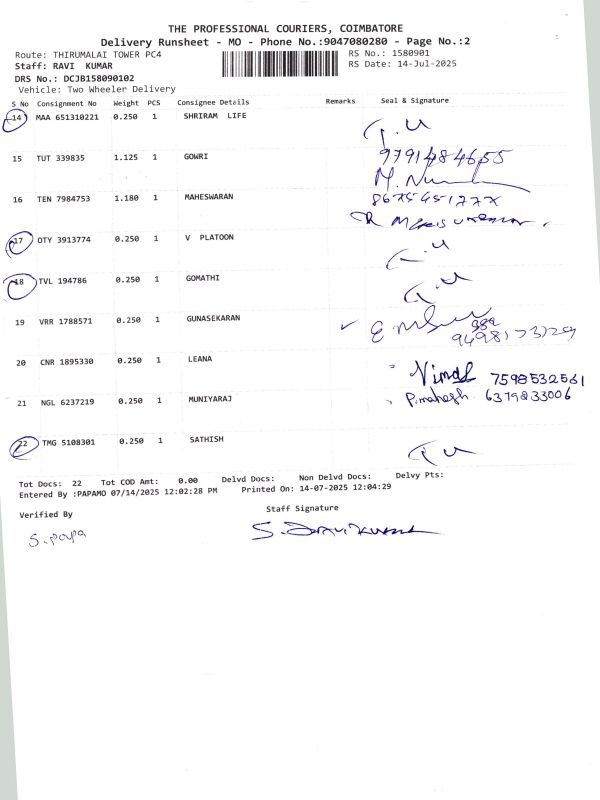 THE PROFESSIONAL COURIERS, COIMBATORE
Delivery Runsheet - MO - Phone No.:9047080280 - Page No.:2
Route: THIRUMALAI TOWER PC4 RS No.: 1580901
Staff: RAVI KUMAR RS Date: 14-Jul-2025
DRS No.: DCJB158090102
Vehicle: Two Wheeler Delivery
S No Consignment No Weight PCS Consignee Details Remarks Seal & Signature
14 MAA 651310221 0.250 1 SHRIRAM LIFE
15 TUT 339835 1.125 1 GOWRI 9791484655
16 TEN 7984753 1.180 1 MAHESWARAN
17 OTY 3913774 0.250 1 V PLATOON
18 TVL 194786 0.250 1 GOMATHI
19 VRR 1788571 0.250 1 GUNASEKARAN
20 CNR 1895330 0.250 1 LEANA Nimal 7598532561
21 NGL 6237219 0.250 1 MUNIYARAJ P.mahesh 6379833006
22 TMG 5108301 0.250 1 SATHISH
Tot Docs: 22 Tot COD Amt: 0.00 Delvd Docs: Non Delvd Docs: Delvy Pts:
Entered By :PAPAMO 07/14/2025 12:02:28 PM Printed On: 14-07-2025 12:04:29
Verified By Staff Signature
S.papa